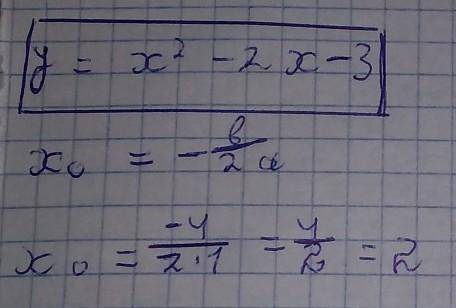 y = x² - 2x - 3
x₀ = -в/2a
x₀ = -4/2·1 = 4/2 = 2